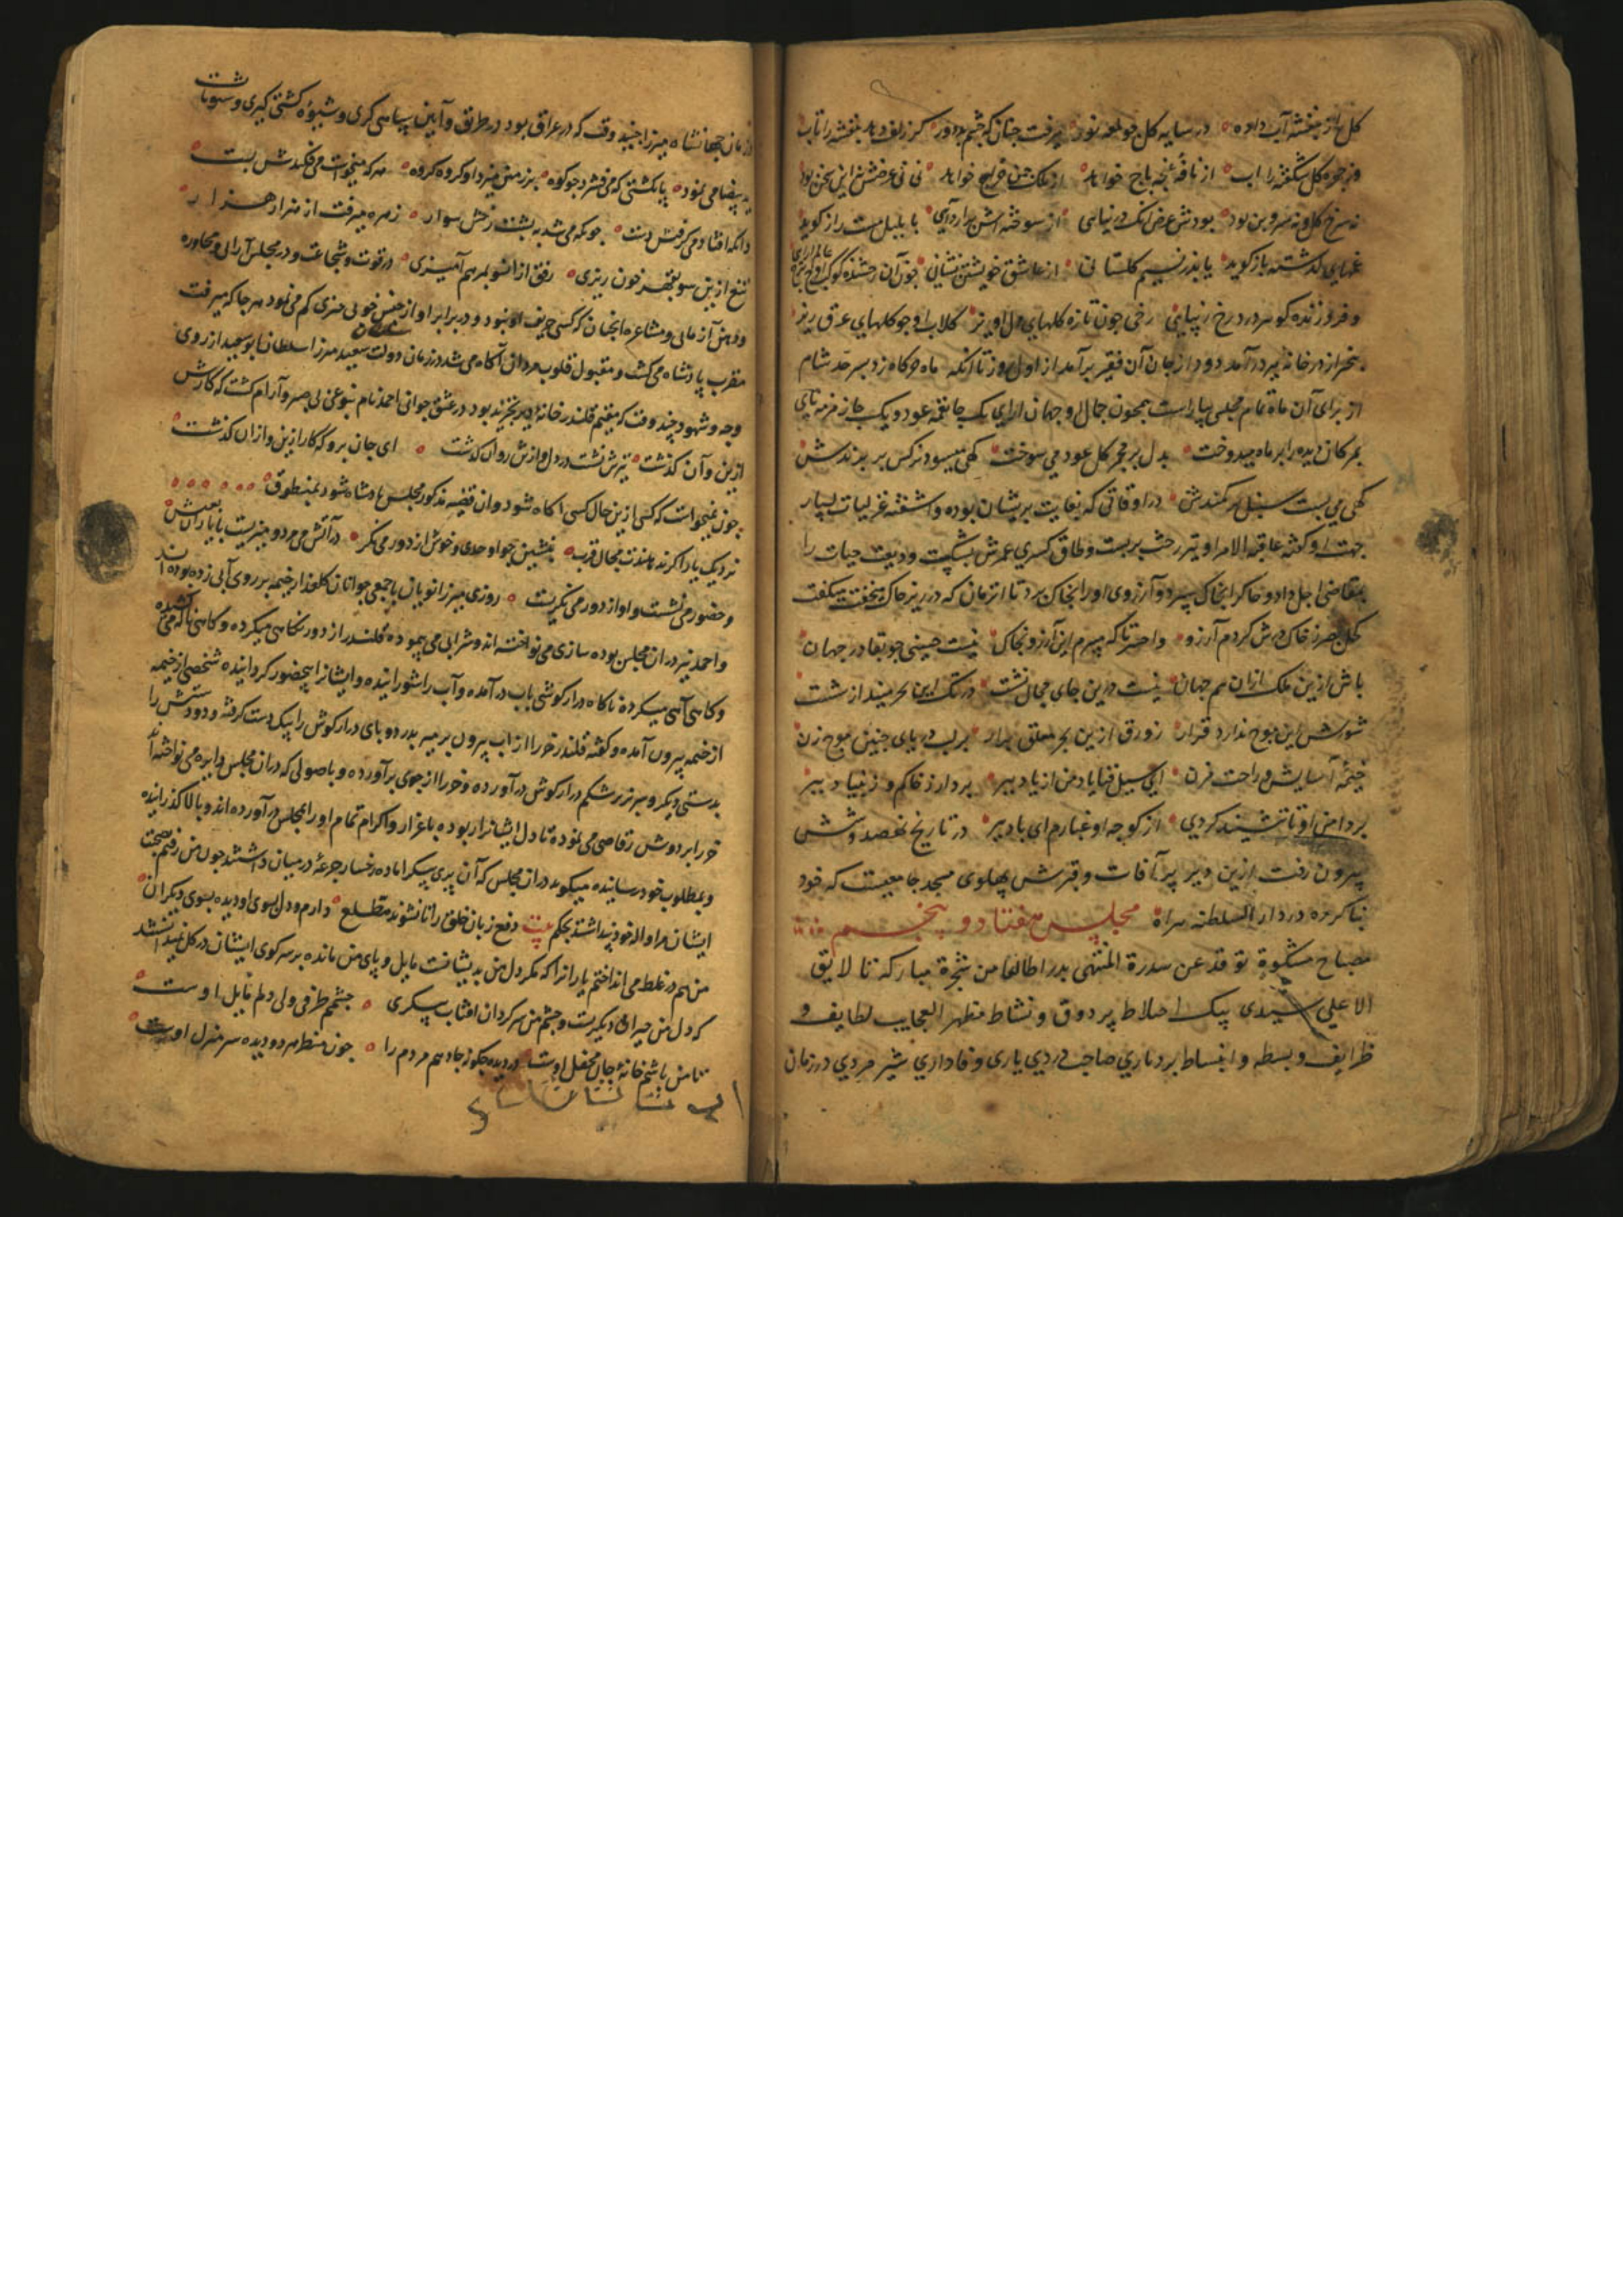 کل از بنفشه آب داده در سایه کل چو لمعه نور میرفت چنان که چشم بد دور کز زلف دهد بنفشه را تاب
وز چهره کل شکفته را اب از نافه غنچه باج خواهد از ملک چمن خراج خواهد نی نی غرضش این سخن بود
نه سرخ کل و نه سرو بن بود بودش غرض انک در پناهی از سوخته اش برارد آهی با بلبل مست راز کوید
غمهای گذشته باز کوید یابد ز نسیم کلستانی از عاشق خویشتن نشانی چون آن رخشنده کوکب
و فروزنده کوهر در درخ زیبایی رخی چون تازه کلهای دل اویز کلاب او چو کلهای عرق ریز
سحر از در خانه پیر در آمد دود از جان آن فقیر بر آمد از اول روز تا انکه ماه خرکاه زد بسر حد شام
از برای آن ماه تمام مجلسی بیاراست همچون جمال او جهان ارای یک جا نغمه عود و یک جا زمزمه نای
بمژکان دیده را بر ماه میدوخت بدل بر مجمر کل عود می سوخت کهی میسود نرکس بر پرندش
کهی می بست سنبل بر کمندش در اوقاتی که بغایت پریشان بوده و اشفته غزلیات بسیار
جهت او کفته عاقبة الامر او نیز رخت بربست و طاق کسری عمرش بشکست ودیعت حیات را
بمتقاضی اجل داد و خاکرا بخاک سپرد و آرزوی او را بخاک برد تا انزمان که در زیر خاک میخفت میکفت
کحل بصر ز خاک درش کردم آرزو واحسرتا که میبرم این آرزو بخاک نیست حسینی چو بقا در جهان
باش ازین ملک ازان هم جهان نیست درین جای مجال نشست در تک این بحر میند از شست
شورش این موج ندارد قرار زورق ازین بحر معلق برار بر لب دریای چنین موج زن
خیمه آسایش و راحت مزن ای سیل فنا یاد من از یاد ببر بردار ز خاکم و ز بنیاد ببر
بر دامن او تا ننشیند کردی از کوچه او غبارم ای باد ببر در تاریخ نهصد و شش
بیرون رفت ازین دیر پر آفات و قبرش پهلوی مسجد جامعیست که خود
بنا کرده در دار السلطنه هراة مجلس هفتاد و پنجم
مصباح مشکوة توقد عن سدرة المنتهی بدر اطالعا من شجرة مبارکه تا لایق
الا علی سیدی بیک اختلاط پر ذوق و نشاط مظهر العجایب لطایف و
ظرایف و بسطه و انبساط بردباری صاحب دردی یاری وفاداری شیر مردی در زمان
زمان جهانشاه میرزا چند وقت که در عراق بود در طرق و آیین سپاهی کری و شیوه کشتی کیری
ید بیضا می نمود پا بکشتی که می فشرد چو کوه بر زمین میزد او کروه کروه هر که میخواست می فکندش پست
وانکه افتاد می کرفتش دست چونکه می شد به پشت رخش سوار زهره میرفت از هزار هزار
تیغ ازین سو بقهر خون ریزی رفق ازانسو بمرهم آمیزی در قوت و شجاعت و در مجلس آرائی و محاوره
و ذهن آزمائی و مشاعره انچنان که کسی حریف او نبود و در برابر او از جنس خوبی هنری کم می نمود هر جا که میرفت
مقرب پادشاه می کشت و مقبول قلوب مردان آکاه می شد در زمان دولت سعید میرزا سلطان ابو سعید از روی
وجد و شهود چند وقت که مقیم قلندر خانه بود در عشق جوانی احمد نام بنوعی بی صبر و آرام کشت که کارش
ازین و آن کذشت تیرش نشست در دل و ازش روان کذشت ای جان برو که کار ازین و ازان کذشت
چون نمیخواست که کسی ازین حال کسی اکاه شود و ان قضیه مذکور مجلس پادشاه شود بمنطوق
نزدیک یارا کر ندهندت مجال قرب بنشین چو اوحدی و خوش از دور می نکر در آتش می مرد و میزیست با یاران بعیش
و حضور می نشست و او از دور می نکریست روزی میرزانویان با جمعی جوانان کلعذار خیمه بر روی آبی زده بوده اند
و احمد نیز دران مجلس بوده سازی می نواخته اند و شرابی می پیموده قلندر از دور نکاهی میکرده و کاهی ناله می کشیده
و کاهی آهی میکرده ناکاه دراز کوشی باب در آمده و آب را شورانیده و ایشانرا بیحضور کردانیده شخصی از خیمه
از خیمه بیرون آمده و کفته قلندر خر را از اب بیرون بر میر بدر دو پای دراز کوش را بیک دست کرفته و دو دستش را
بدستی دیکر و سر بر زیر شکم دراز کوش در آورده و خر را از جوی بر آورده و باصولی که دران مجلس دایره می نواخته اند
خر را بر دوش رقاصی می نموده تا دل ایشانرا ربوده باعزاز و اکرام تمام او را بمجلس در آورده اند و بالا کذرانیده
و بمطلوب خود رسانیده میکوید دران مجلس که آن پری پیکر اماده رخسار جرعه در میان داشتند چون من رفتم صحبت
ایشان مرا واله خود پنداشتند بحکم بیت دفع زبان خلق را تا نشوند مطلع دارم و دل بسوی او دیده بسوی دیکران
من هم در غلط می انداختم یاران را که مکر دل من به پیشانت مایل و پای من مانده بر سر کوی ایشان در کل نمیدانستند
که دل من حیران دیکریست و چشم من سر کردان افتاب پیکری چشمم طرفی ولی دلم مایل اوست
تا من باشم خانه جان محفل اوست در دیده چکونه جا دهم مردم را چون منظر هر دو دیده سر منزل اوست